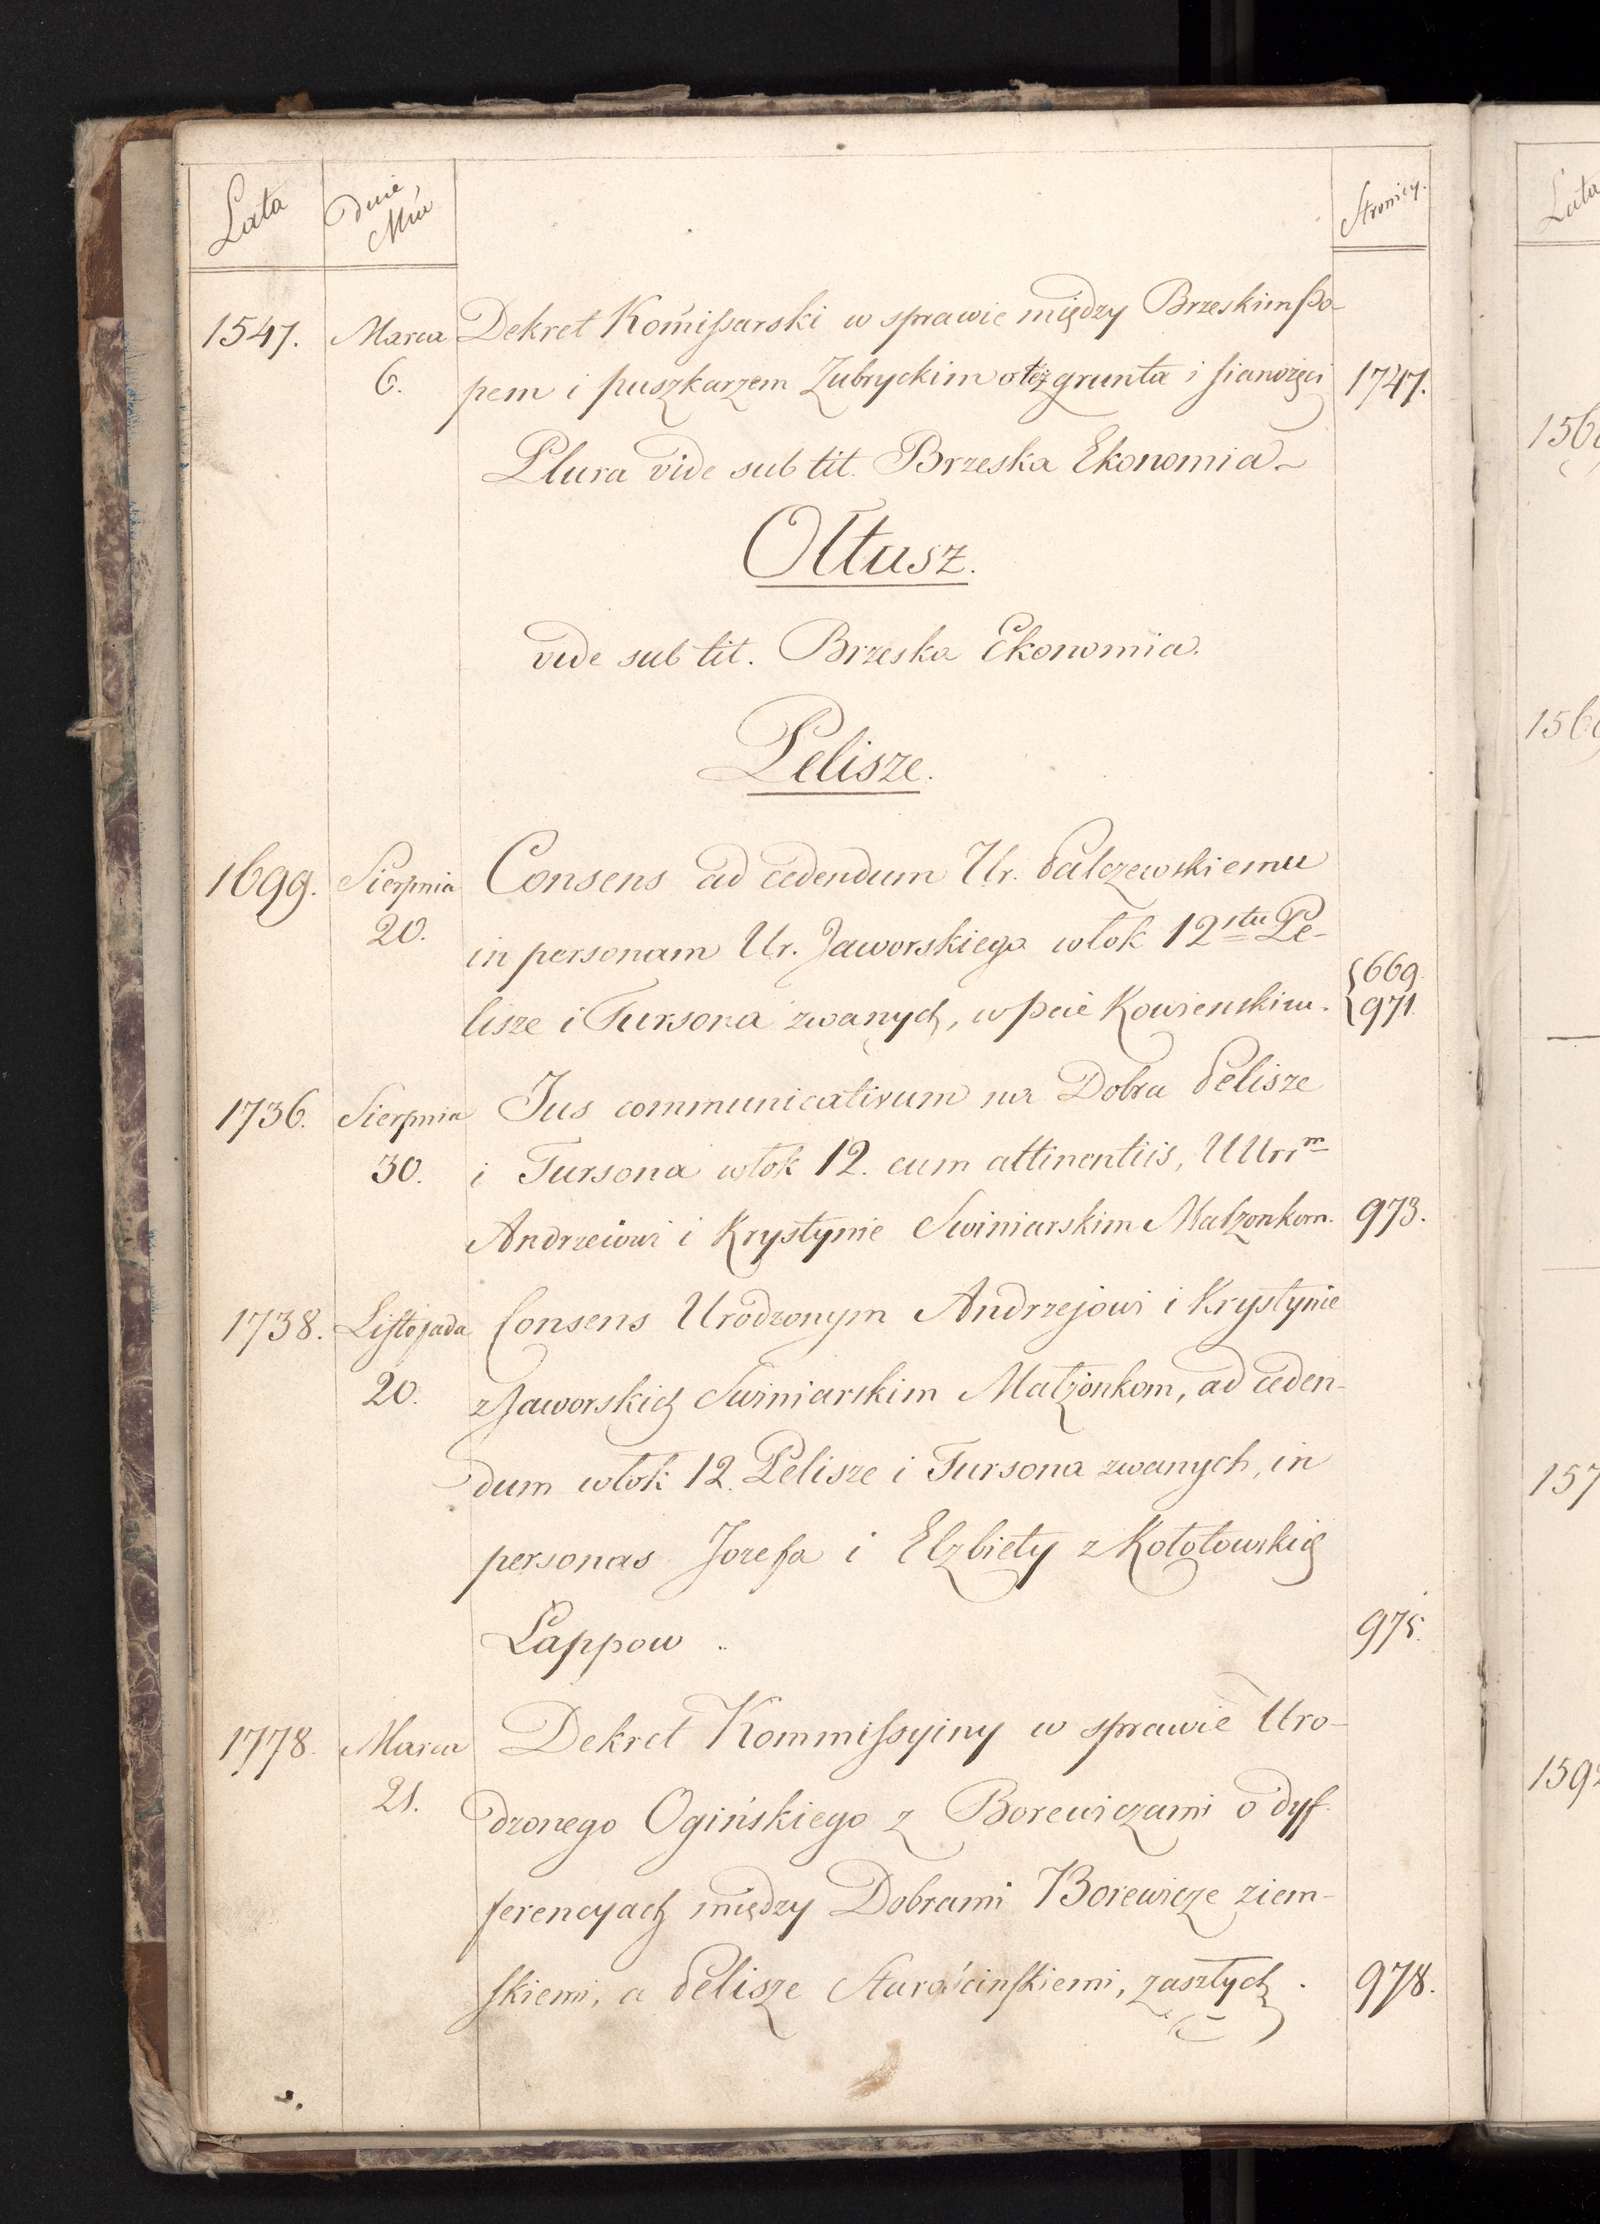 Lata
Dnie
Mca
Stronicy.
1547. Marca Dekret Kom̃issarski w sprawie między Brzeskim Po-
6. pem i puszkarzem Zubryckim o też grunta i sianożęci 1747.
Plura vide sub tit. Brzeska Ekonomia
Ołtusz.
vide sub tit. Brzeska Ekonomia.
Pelisze.
1699. Sierpnia Consens ad cedendum Ur. Palczewskiemu
20. in personam Ur. Jaworskiego włok 12stu Pe-
669
lisze i Tursona zwanych, w Pcie Kowienskim. 971.
1736. Sierpnia Jus communicativum na Dobra Pelisze
30. i Tursona włok 12. cum attinentiis, UUrr m
Andrzeiowi i Krystynie Swiniarskim Małzonkom. 973.
1738. Listopada Consens Urodzonym Andrzejowi i Krystynie
20. z Jaworskich Swiniarskim Małżonkom, ad ceden-
dum włok 12. Pelisze i Tursona zwanych, in
personas Jozefa i Elzbiety z Kołotowskich
Łappow 975.
1778. Marca Dekret Kommissyiny w sprawie Uro-
21. dzonego Ogińskiego z Borewiczami o dyf-
ferencyach między Dobrami Borewicze ziem-
skiemi, a Pelisze Starościnskiemi, zaszłych. 978.
Lata
156
156
157
159